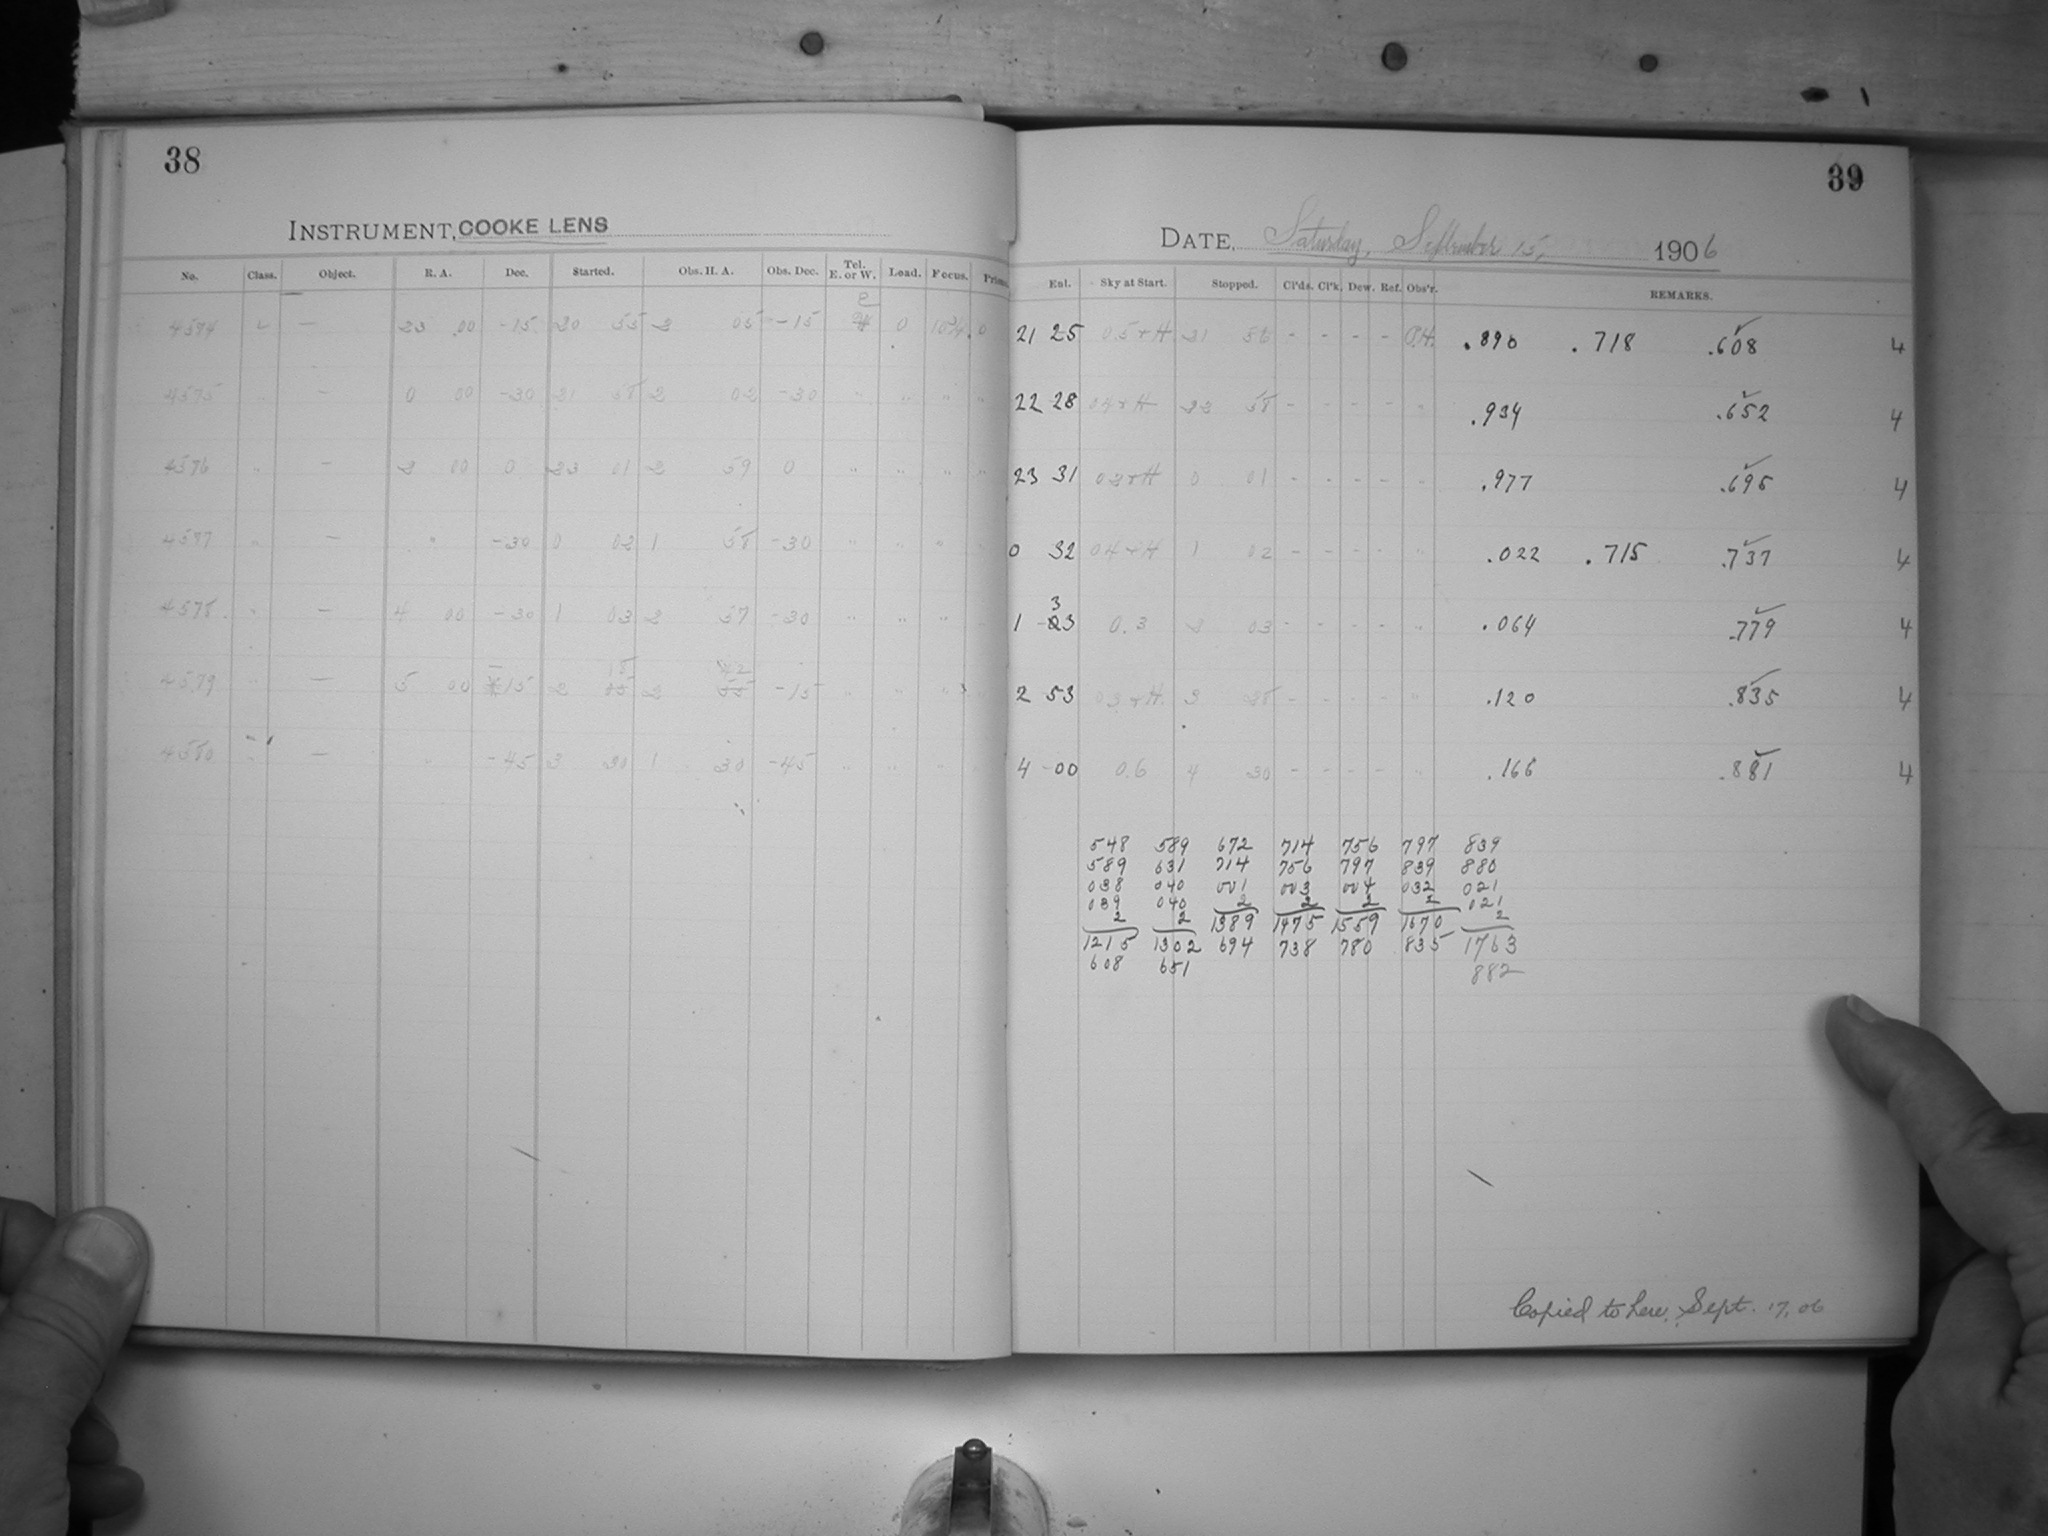 38
39
INSTRUMENT, COOKE LENS
DATE, Saturday, September 15, 1906
No. Class. Object. R. A. Dec. Started. Obs. H. A. Obs. Dec. Tel. E. or W. Lead. Focus. Ent. Sky at Start. Stopped. Cl'ds. Cl'k. Dew. Ref. Obs'r. REMARKS.
4574 — 23 00 -15 20 55 2 05 -15 0 21 25 0.5+H 21 56 - - - - .890 .718 .608 4
4575 " — 0 00 -30 21 58 2 02 -30 " " " " 22 28 04+H 22 58 - - - - " .934 .652 4
4576 " — 2 00 0 23 01 2 59 0 " " " " 23 31 03+H 0 01 - - - - " .977 .695 4
4577 " — " -30 0 02 1 58 -30 " " " " 0 32 04+H 1 02 - - - - " .022 .715 .737 4
4578 " — 4 00 -30 1 03 2 57 -30 " " " 1 33 0.3 2 03 - - - - " .064 .779 4
4579 " — 5 00 -15 2 2 -15 " " " " 2 53 03+H 3 28 - - - - " .120 .835 4
4580 " — " -45 3 30 1 30 -45 " " " " 4 00 0.6 4 30 - - - - " .166 .881 4
548 589 672 714 756 797 839
589 631 714 756 797 839 880
038 040 001 003 004 032 021
039 040 2 2 2 2 021
2 2 1389 1475 1559 1670 2
1215 1302 694 738 780 835 1763
608 651 882
Copied to here, Sept. 17, 06